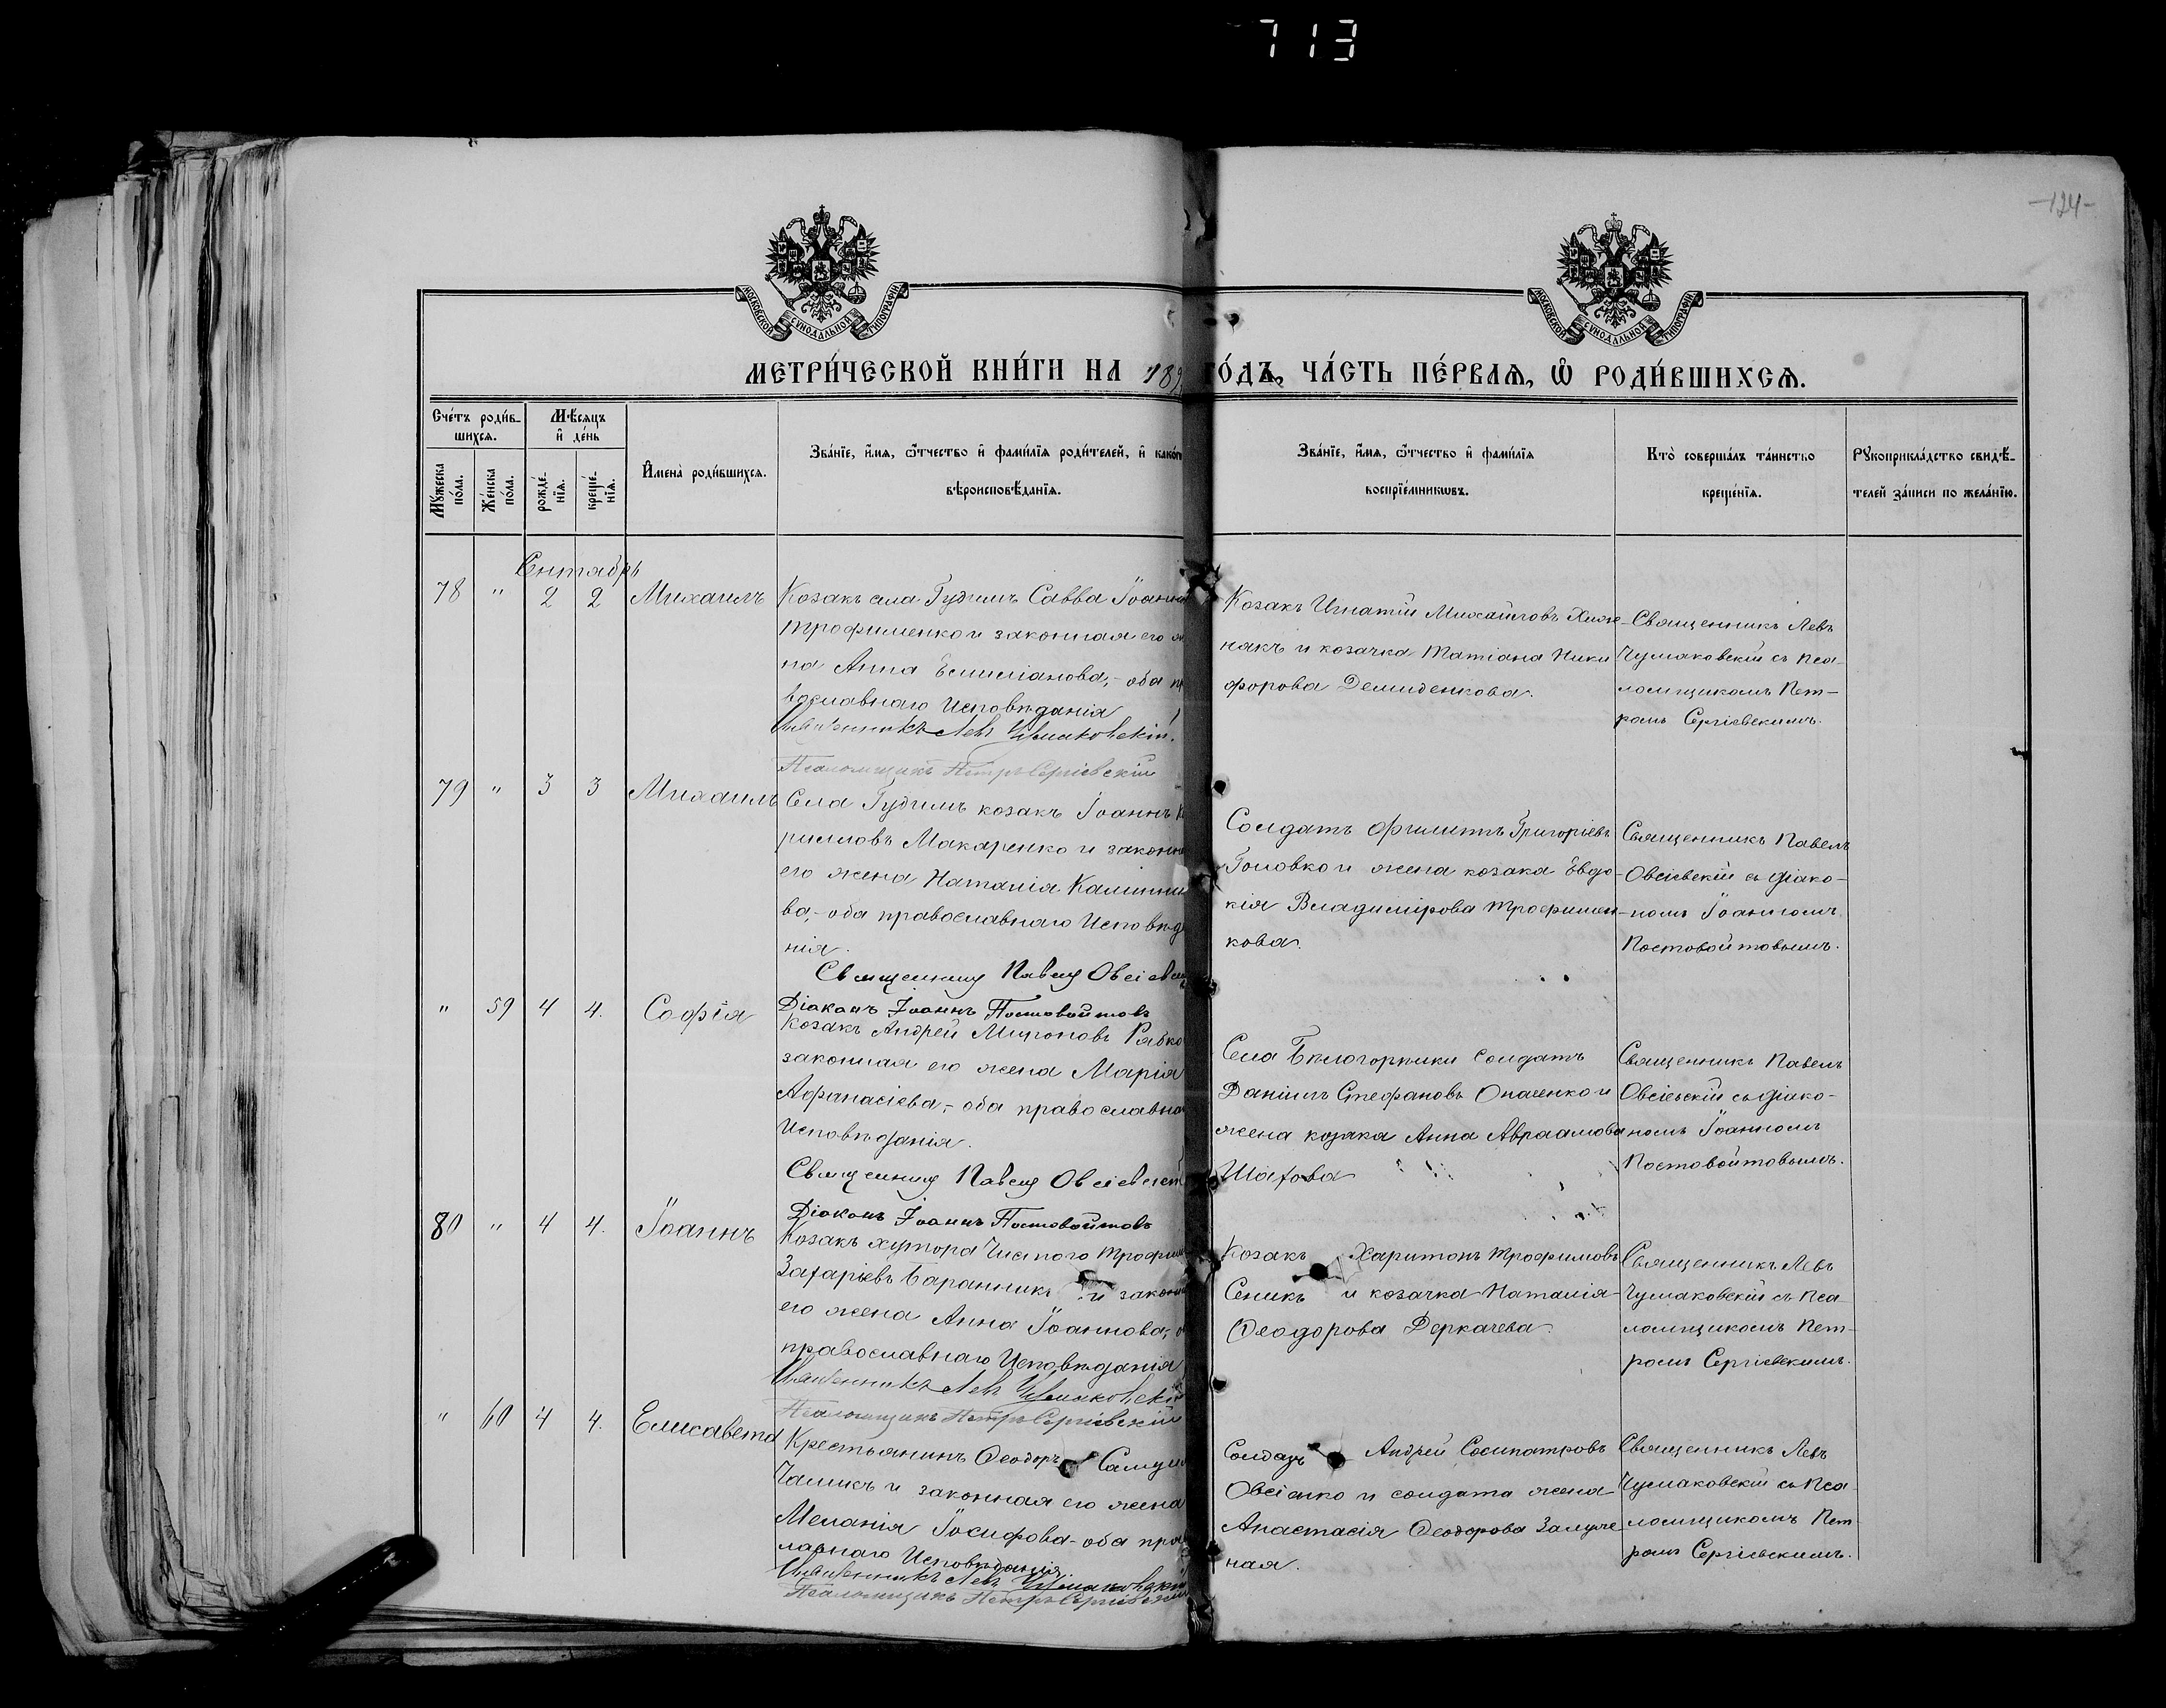 713
-124-
МОСКОВСКОЙ СѴНОДАЛЬНОЙ ТИПОГРАФІИ
МОСКОВСКОЙ СѴНОДАЛЬНОЙ ТИПОГРАФІИ
МЕТРИ́ЧЕСКОЙ КНИ́ГИ НА 189 ГО́ДЪ, ЧА́СТЬ ПЕ́РВАЯ, Ѡ҆ РОДИ́ВШИХСЯ.
Сче́тъ роди́в-
шихся.
Мѣ́сяцъ
и҆ де́нь
Мꙋ́жеска
по́ла.
Же́нска
по́ла.
рожде́-
нїя.
креще́-
нїя.
И҆мена̀ роди́вшихся.
Зва́нїе, и҆́мя, ѻ҆́тчество и҆ фами́лїя роди́телей, и҆ како́гѡ
вѣроисповѣ́данїя.
Зва́нїе, и҆́мя, ѻ҆́тчество и҆ фами́лїя
воспрїе́мникѡвъ.
Кто̀ соверша́лъ та́инство
креще́нїя.
Рꙋкоприкла́дство свидѣ́-
телей за́писи по жела́нїю.
Сентябрь
78 " 2 2 Михаилъ
Козакъ села Гудимъ Савва Іоанно
Трофименко и законная его ж
на Анна Емиліанова,- оба пр
вославнаго Исповѣданія
Священникъ Левъ Чумаковскій.
Псаломщикъ Петръ Сергіевскій
Козакъ Игнатій Михайловъ Хиж-
някъ и козачка Татіана Ники
форова Демиденкова.
Священникъ Левъ
Чумаковскій съ Пса-
ломщикомъ Пет-
ромъ Сергіевскимъ.
79 " 3 3 Михаилъ
Села Гудимъ козакъ Іоаннъ К
рилловъ Макаренко и законна
его жена Наталія Калинни
ва,- оба православнаго Исповѣд
нія.
Священникъ Павелъ Овсіевск
Діаконъ Іоаннъ Постовойтовъ
Солдатъ Филиппъ Григоріевъ
Головко и жена козака Евдо-
кія Владимірова Трофимен-
кова.
Священникъ Павелъ
Овсіевскій съ діако-
номъ Іоанномъ
Постовойтовымъ.
" 59 4 4. Софія
Козакъ Андрей Мироновъ Рябко
законная его жена Марія
Афанасіева,- оба православна
Исповѣданія.
Священникъ Павелъ Овсіевскій
Діаконъ Іоаннъ Постовойтовъ
Села Бѣлогорѣлки солдатъ
Даніилъ Стефановъ Опаленко и
жена козака Анна Авраамова
Шахова
Священникъ Павелъ
Овсіевскій съ діако-
номъ Іоанномъ
Постовойтовымъ.
80 " 4 4. Іоаннъ
Козакъ хутора Чистого Трофим
Захаріевъ Баранникъ и законн
его жена Анна Іоаннова,- о
православнаго Исповѣданія
Священникъ Левъ Чумаковскій
Псаломщикъ Петръ Сергіевскій
Козакъ Харитонъ Трофимовъ
Сеникъ и козачка Наталія
Ѳеодорова Деркачева.
Священникъ Левъ
Чумаковскій съ Пса-
ломщикомъ Пет-
ромъ Сергіевскимъ.
" 60 4 4. Елисавета
Крестьянинъ Ѳеодоръ Самуи
Чаликъ и законная его жена
Меланія Іосифова- оба прав
лавнаго Исповѣданія.
Священникъ Левъ Чумаковскій
Псаломщикъ Петръ Сергіевскій
Солдатъ Андрей Сосипатровъ
Овсіенко и солдата жена
Анастасія Ѳеодорова
ная.
Священникъ Левъ
Чумаковскій съ Пса-
ломщикомъ Пет-
ромъ Сергіевскимъ.